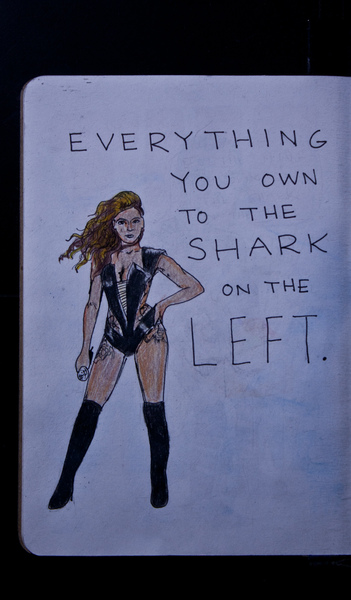 EVERYTHING
YOU OWN
TO THE
SHARK
ON THE
LEFT.